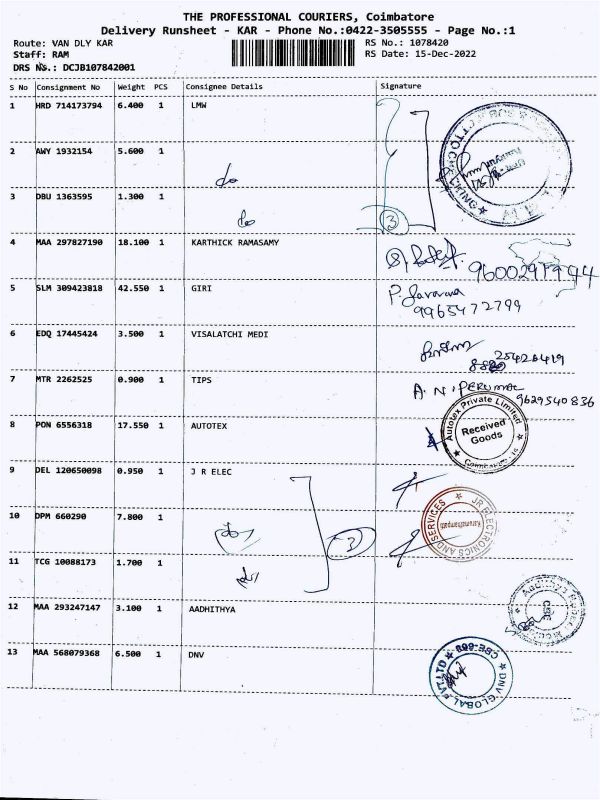 THE PROFESSIONAL COURIERS, Coimbatore
Delivery Runsheet - KAR - Phone No.:0422-3505555 - Page No.:1
Route: VAN DLY KAR RS No.: 1078420
Staff: RAM RS Date: 15-Dec-2022
DRS No.: DCJB107842001
S No Consignment No Weight PCS Consignee Details Signature
1 HRD 714173794 6.400 1 LMW
2 AWY 1932154 5.600 1
do
3 DBU 1363595 1.300 1
do 3
4 MAA 297827190 18.100 1 KARTHICK RAMASAMY
5 SLM 309423818 42.550 1 GIRI P. Saravana
9965472799
6 EDQ 17445424 3.500 1 VISALATCHI MEDI
7 MTR 2262525 0.900 1 TIPS A. N. PERUMAL
9629540836
8 PON 6556318 17.550 1 AUTOTEX
Autotex Private Limited
Received
Goods
9 DEL 120650098 0.950 1 J R ELEC
JR ELECTRONICS AND SERVICES
10 DPM 660290 7.800 1
do 3
11 TCG 10088173 1.700 1
do
12 MAA 293247147 3.100 1 AADHITHYA
13 MAA 568079368 6.500 1 DNV
DNV GLOBAL PVT LTD